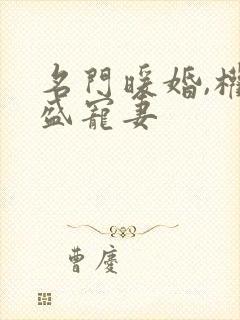 名門暖婚,權
盛寵妻
曹慶